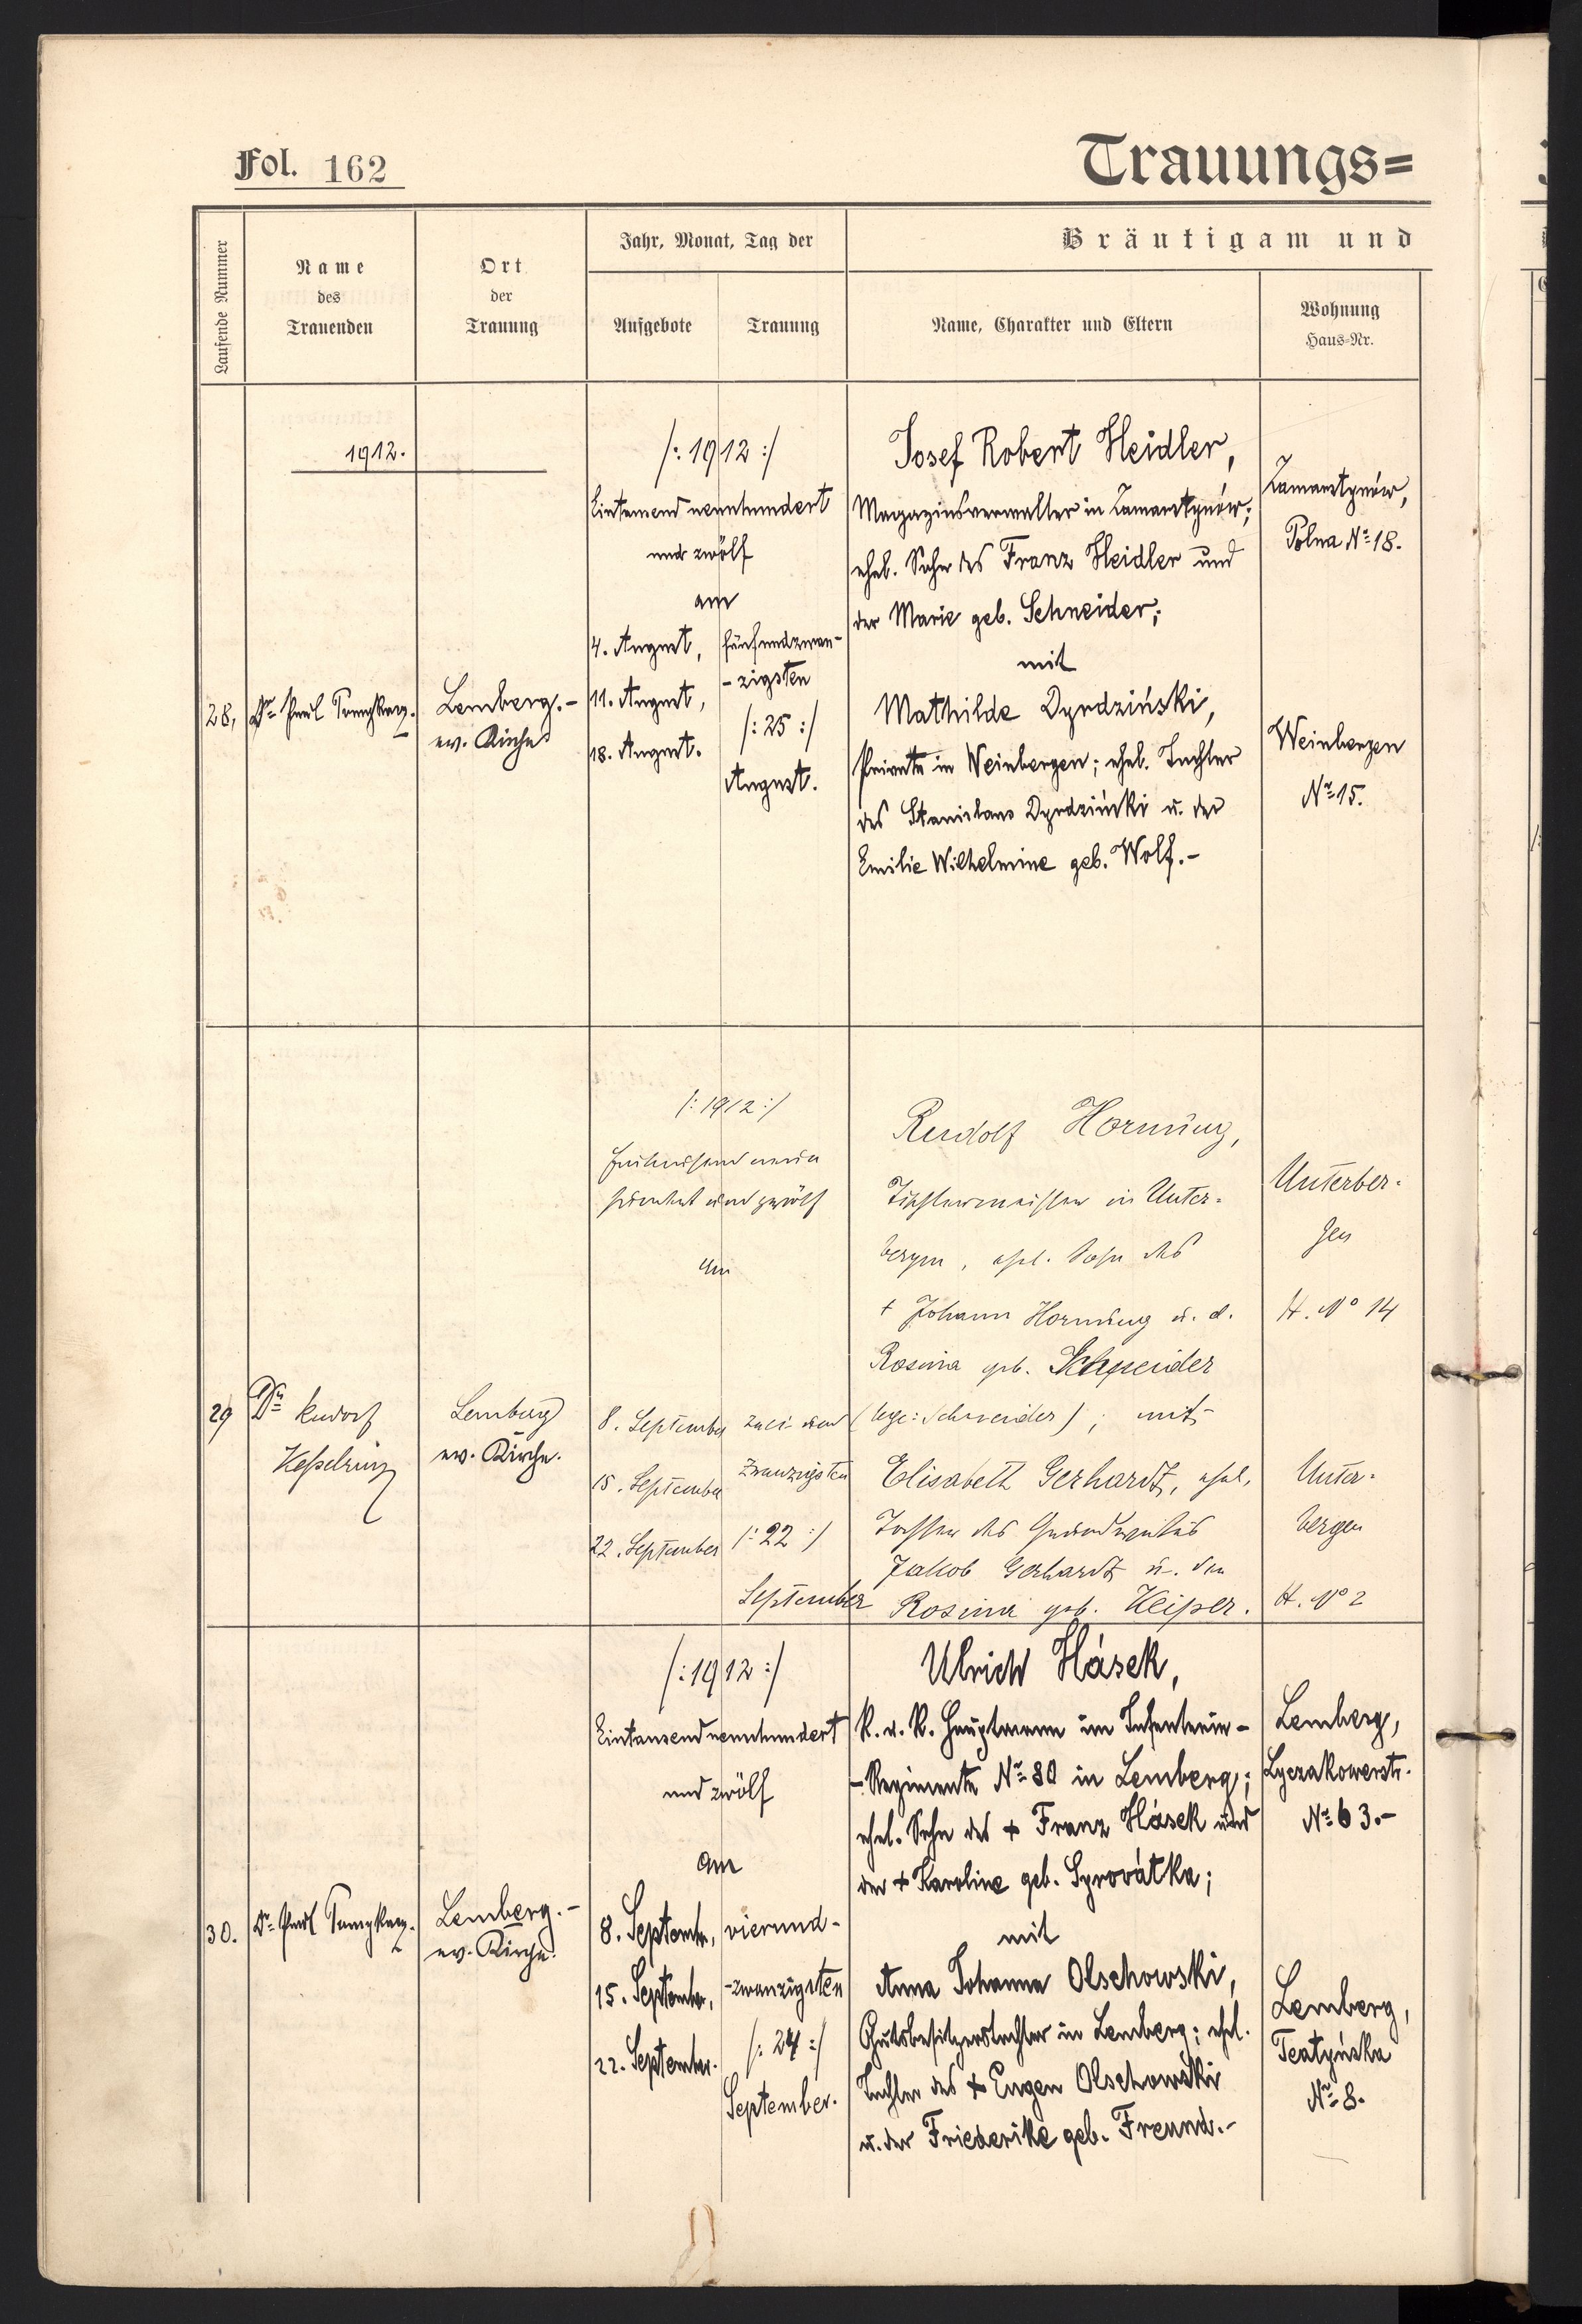 Fol. 162
Trauungs=
Laufende Nummer
Name
des
Trauenden
Ort
der
Trauung
Jahr, Monat, Tag der
Aufgebote
Trauung
Bräutigam und
Name, Charakter und Eltern
Wohnung
Haus=Nr.
1912.
28.
Dr. Paul
Lemberg.-
ev. Kirche.
/: 1912 :/
Eintausend neunhundert
und zwölf
am
4. August,
11. August,
18. August.
fünfundzwan-
-zigsten
/: 25 :/
August.
Josef Robert Heidler,
Magazinsverwalter in Zamarstynów;
ehel. Sohn des Franz Heidler und
der Marie geb. Schneider;
mit
Mathilde Dyrdziński,
Private in Weinbergen; ehel. Tochter
des Stanislaus Dyrdziński u. der
Emilie Wilhelmine geb. Wolf.-
Zamarstynów,
Polna No 18.
Weinbergen
No 15.
29
Dr. Rudolf
Kesselring
Lemberg
ev. Kirche.
/: 1912 :/
Eintausend neun
hundert und zwölf
am
8. September
15. September
22. September
zwei und
zwanzigsten
/: 22 :/
September
Rudolf Hornung,
Tischlermeister in Unter-
bergen, ehel. Sohn des
+ Johann Hornung u. d.
Rosina geb. Schneider
(lege: Schneider); mit
Elisabeth Gerhardt, ehel.
Tochter des Grundwirtes
Jakob Gerhardt u. der
Rosina geb. Keiper.
Unterber-
gen
H. No 14
Unter-
bergen
H. No 2
30.
Dr. Paul
Lemberg.-
ev. Kirche.
/: 1912 :/
Eintausend neunhundert
und zwölf
am
8. September,
15. September,
22. September.
vierund-
-zwanzigsten
/: 24 :/
September.
Ulrich Hásek,
k. u. k. Hauptmann im Infanterie-
-Regimente No 80 in Lemberg;
ehel. Sohn des + Franz Hásek und
der + Karoline geb. Syrovátka;
mit
Anna Johanna Olschowski,
Gutsbesitzerstochter in Lemberg; ehel.
Tochter des + Eugen Olschowski
u. der Friederike geb. Freund.-
Lemberg,
Lyczakowerstr.
No 63.-
Lemberg,
Teatyńska
No 8.